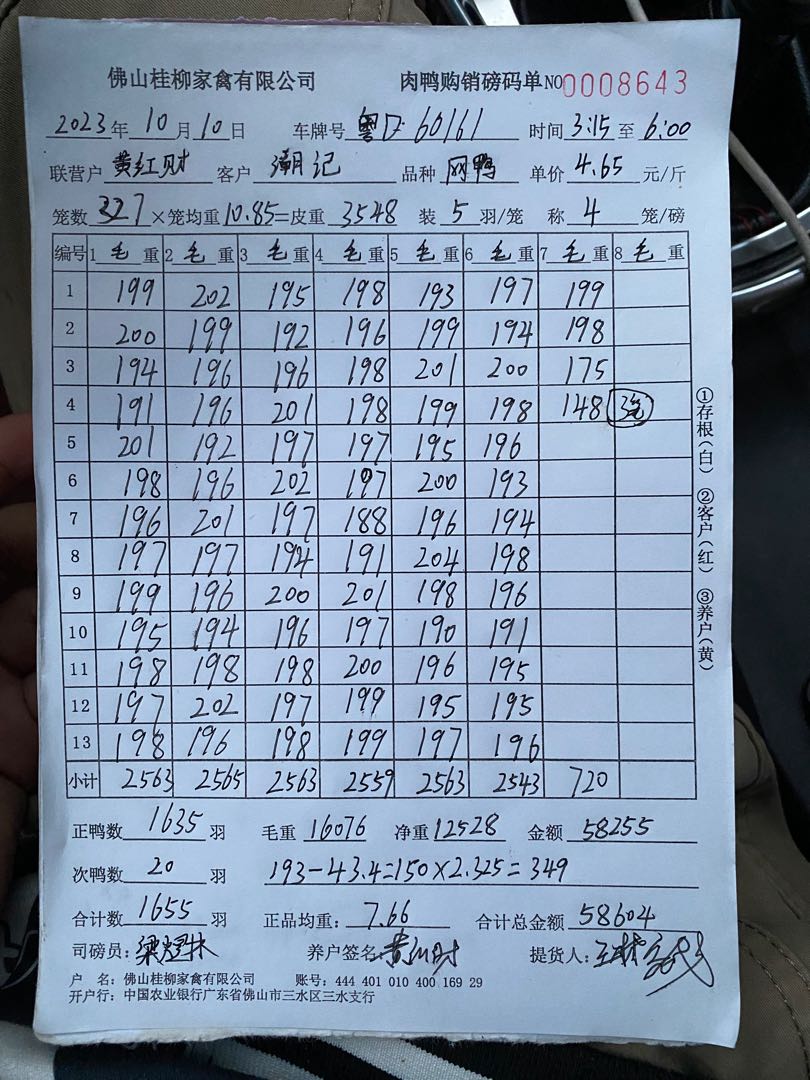 佛山桂柳家禽有限公司 肉鸭购销磅码单 NO 0008643
2023年 10月 10日 车牌号 粤D·60161 时间 3:15 至 6:00
联营户 黄红财 客户 潮记 品种 网鸭 单价 4.65 元/斤
笼数 327 ×笼均重 10.85 =皮重 3548 装 5 羽/笼 称 4 笼/磅
编号 1 毛 重 2 毛 重 3 毛 重 4 毛 重 5 毛 重 6 毛 重 7 毛 重 8 毛 重
1 199 202 195 198 193 197 199
2 200 199 192 196 199 194 198
3 194 196 196 198 201 200 175
4 191 196 201 198 199 198 148
5 201 192 197 197 195 196
6 198 196 202 197 200 193
7 196 201 197 188 196 194
8 197 197 194 191 204 198
9 199 196 200 201 198 196
10 195 194 196 197 190 191
11 198 198 198 200 196 195
12 197 202 197 199 195 195
13 198 196 198 199 197 196
小计 2563 2565 2563 2559 2563 2543 720
正鸭数 1635 羽 毛重 16076 净重 12528 金额 58255
次鸭数 20 羽 193-43.4=150×2.325=349
合计数 1655 羽 正品均重: 7.66 合计总金额 58604
司磅员: 养户签名 提货人:
户 名: 佛山桂柳家禽有限公司 账号: 444 401 010 400 169 29
开户行: 中国农业银行广东省佛山市三水区三水支行
①存根(白) ②客户(红) ③养户(黄)